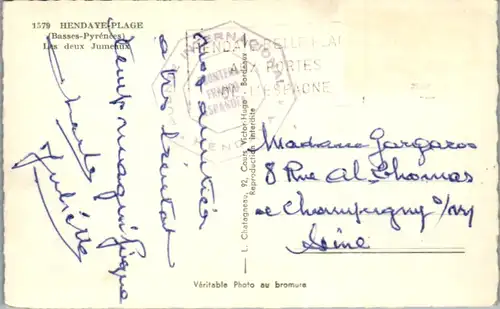 1579 HENDAYE-PLAGE
(Basses-Pyrénées)
Les deux Jumeaux
HENDAYE BELLE PLAGE
AUX PORTES
DE L'ESPAGNE
INTERNATIONAL
HENDAYE
Nos amitiés
à très bientôt
temps magnifique
Juliette
L. Chatagneau, 92, Cours Victor-Hugo - Bordeaux
Reproduction interdite
Madame Gargaros
8 Rue Al. Thomas
de Champigny s/M
Seine
Véritable Photo au bromure